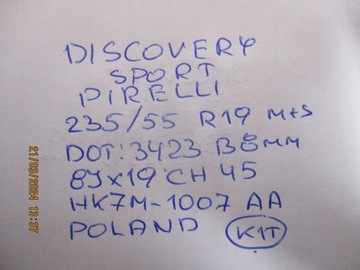 DISCOVERY
SPORT
PIRELLI
235/55 R19 M+S
DOT: 3423 B8MM
8Jx19 CH 45
HK7M-1007 AA
POLAND K1T
21/09/2024 13:37